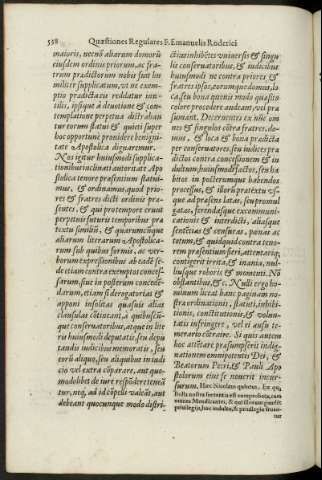 538 Quæstiones Regulares F. Emanuelis Roderici
maioris, necnõ aliarum domorũ
eiusdem ordinis priorum, ac fra-
trum prædictorum nobis fuit hu
militer supplicatum, vt ne exem-
ptio prædicta eis reddatur inu-
tilis, ipsique à deuotione & con-
templatione perpetua distrahan
tur eorum statui & quieti super
hoc opportunè prouidere benigni-
tate Apostolica dignaremur.
Nos igitur huiusmodi supplica-
tionibus inclinati autoritate Apo
stolica tenore præsentium statui-
mus, & ordinamus, quod prio-
res & fratres dicti ordinis præ-
sentes, & qui pro tempore erunt
perpetuis futuris temporibus præ
textu similium, & quarumcũque
aliarum literarum Apostolica-
rum sub quibus formis, ac ver-
borum expressionibus ab eadẽ se-
de etiam contra exemptos conces-
sarum, siue in posterum conceden-
darum, etiam si derogatorias &
apponi insolitas quasuis alias
clausulas cõtineant, à quibuscũ-
que conseruatoribus, atque in lite
ris huiusmodi deputatis, seu depu
tandis iudicibus memoratis, seu
eorũ aliquo, seu aliquibus in iudi
cio vel extra cõparere, aut quo-
modolibet de iure respõdere teneã
tur, neq, ad id cõpelli valeãt, aut
debeant quocunque modo distri-
ctius inhibẽtes vniuersis & singu
lis conseruatoribus, & iudicibus
huiusmodi ne contra priores &
fratres ipsos, eorumque domos, lo
ca, seu bona quænis modo quæsito
colore procedere audeant, vel præ
sumant. Decernentes ex nũc om
nes & singulos cõtra fratres, do-
mos, & loca & bona prædicta
per conseruatores, seu iudices præ
dictos contra concessionem & in
dultum, huiusmodi factos, seu ha
bitos in posterumque habendos
processus, & illorũ prætextu vs-
que ad præsens latas, seu promul
gatas, ferendasque excommuni-
cationis & interdicti, aliasque
sentẽtias & censuras, pœnas ac
totum, & quidquid contra teno-
rem præsentium fieri, attentari
contigerit irrita, & inania, nul-
liusque roboris & momenti. Nõ
obstantibus, &c. Nulli ergo ho-
minum liceat hanc paginam no-
stræ ordinationis, statuti, inhibi-
tionis, constitutionis, & volun-
tatis infringere, vel ei ausu te-
merario cõtraire. Si quis autem
hoc attẽtare præsumpserit indig-
nationem omnipotentis Dei, &
Beatorum Petri, & Pauli Apo
stolorum eius se nouerit incur-
surum. Hæc Nicolaus quintus.